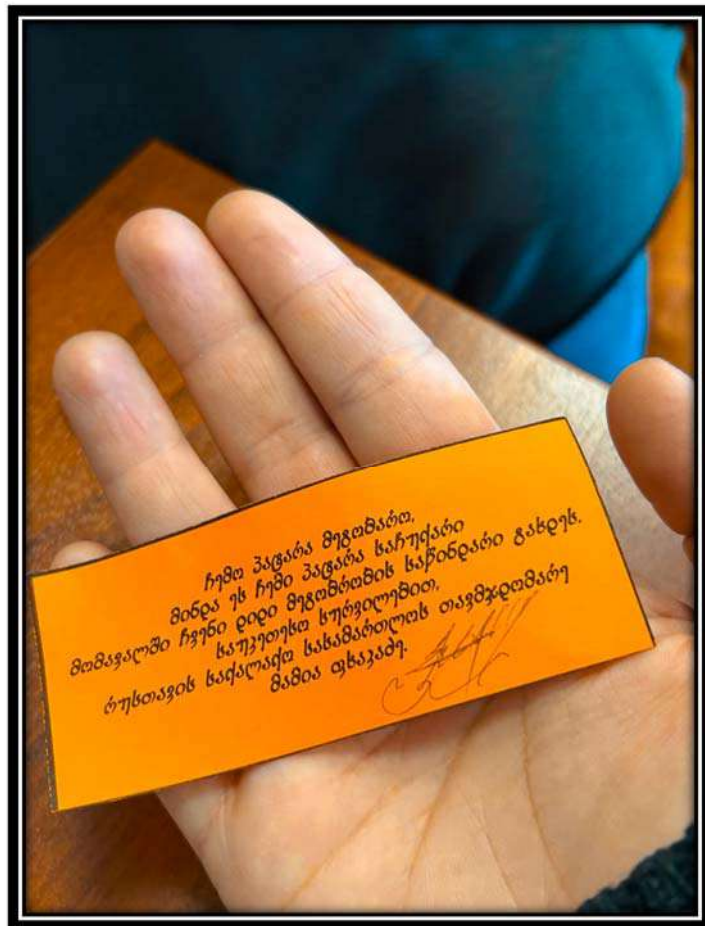 ჩემო პატარა მეგობარო,
მინდა ეს ჩემი პატარა საჩუქარი
მომავალში ჩვენი დიდი მეგობრობის საწინდარი გახდეს.
საუკეთესო სურვილებით,
რუსთავის საქალაქო სასამართლოს თავმჯდომარე
მამია ფხაკაძე.